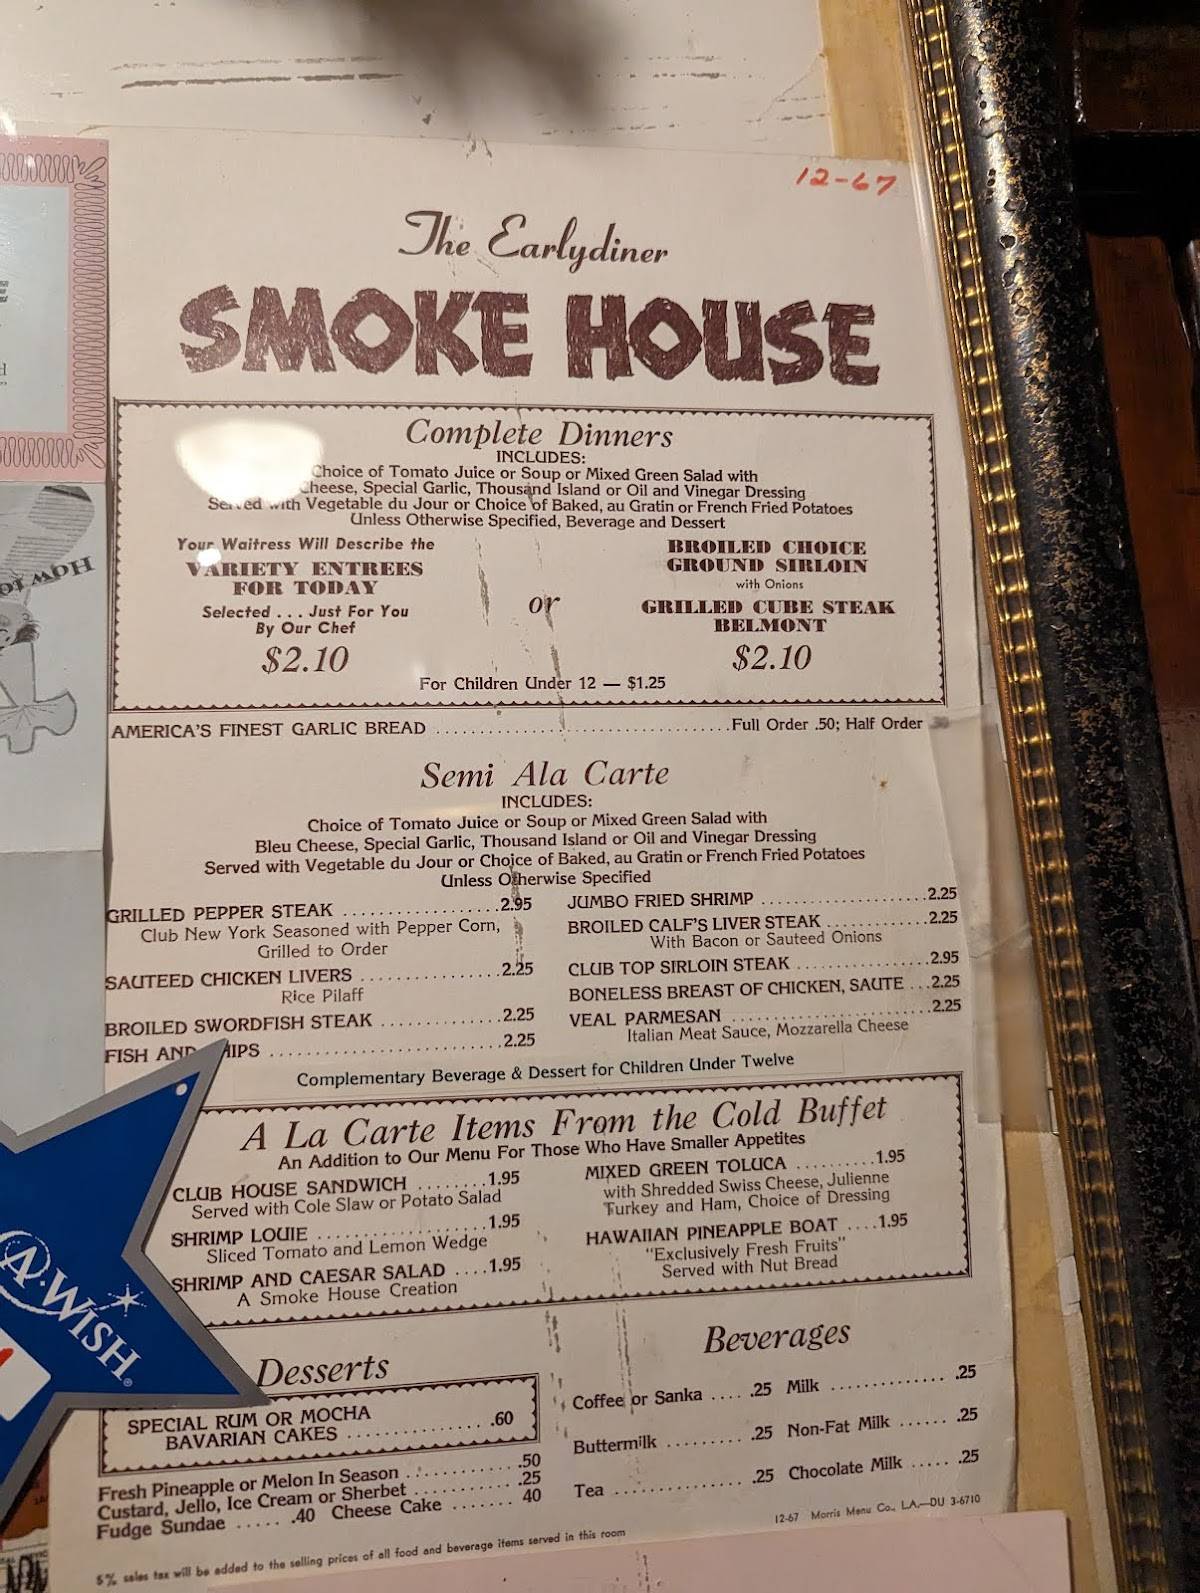 12-67
The Earlydiner
SMOKE HOUSE
Complete Dinners
INCLUDES:
Choice of Tomato Juice or Soup or Mixed Green Salad with
Cheese, Special Garlic, Thousand Island or Oil and Vinegar Dressing
Served with Vegetable du Jour or Choice of Baked, au Gratin or French Fried Potatoes
Unless Otherwise Specified, Beverage and Dessert
Your Waitress Will Describe the
VARIETY ENTREES
FOR TODAY
Selected . . . Just For You
By Our Chef
$2.10
or
BROILED CHOICE
GROUND SIRLOIN
with Onions
GRILLED CUBE STEAK
BELMONT
$2.10
For Children Under 12 — $1.25
AMERICA'S FINEST GARLIC BREAD ................................Full Order .50; Half Order
Semi Ala Carte
INCLUDES:
Choice of Tomato Juice or Soup or Mixed Green Salad with
Bleu Cheese, Special Garlic, Thousand Island or Oil and Vinegar Dressing
Served with Vegetable du Jour or Choice of Baked, au Gratin or French Fried Potatoes
Unless Otherwise Specified
GRILLED PEPPER STEAK ................2.95
Club New York Seasoned with Pepper Corn,
Grilled to Order
SAUTEED CHICKEN LIVERS ..............2.25
Rice Pilaff
BROILED SWORDFISH STEAK ............2.25
FISH AND HIPS .......................2.25
JUMBO FRIED SHRIMP ..................2.25
BROILED CALF'S LIVER STEAK ..........2.25
With Bacon or Sauteed Onions
CLUB TOP SIRLOIN STEAK ..............2.95
BONELESS BREAST OF CHICKEN, SAUTE ...2.25
VEAL PARMESAN .......................2.25
Italian Meat Sauce, Mozzarella Cheese
Complementary Beverage & Dessert for Children Under Twelve
A La Carte Items From the Cold Buffet
An Addition to Our Menu For Those Who Have Smaller Appetites
CLUB HOUSE SANDWICH ........1.95
Served with Cole Slaw or Potato Salad
SHRIMP LOUIE ...................1.95
Sliced Tomato and Lemon Wedge
SHRIMP AND CAESAR SALAD ....1.95
A Smoke House Creation
MIXED GREEN TOLUCA ..........1.95
with Shredded Swiss Cheese, Julienne
Turkey and Ham, Choice of Dressing
HAWAIIAN PINEAPPLE BOAT ....1.95
"Exclusively Fresh Fruits"
Served with Nut Bread
Desserts
SPECIAL RUM OR MOCHA
BAVARIAN CAKES .................60
Fresh Pineapple or Melon In Season .............50
Custard, Jello, Ice Cream or Sherbet ...........25
Fudge Sundae ..... .40 Cheese Cake ....... 40
Beverages
Coffee or Sanka .... .25 Milk .............. .25
Buttermilk ......... .25 Non-Fat Milk ...... .25
Tea ................ .25 Chocolate Milk ..... .25
12-67 Morris Menu Co., LA.—DU 3-6710
5% sales tax will be added to the selling prices of all food and beverage items served in this room
A-WISH